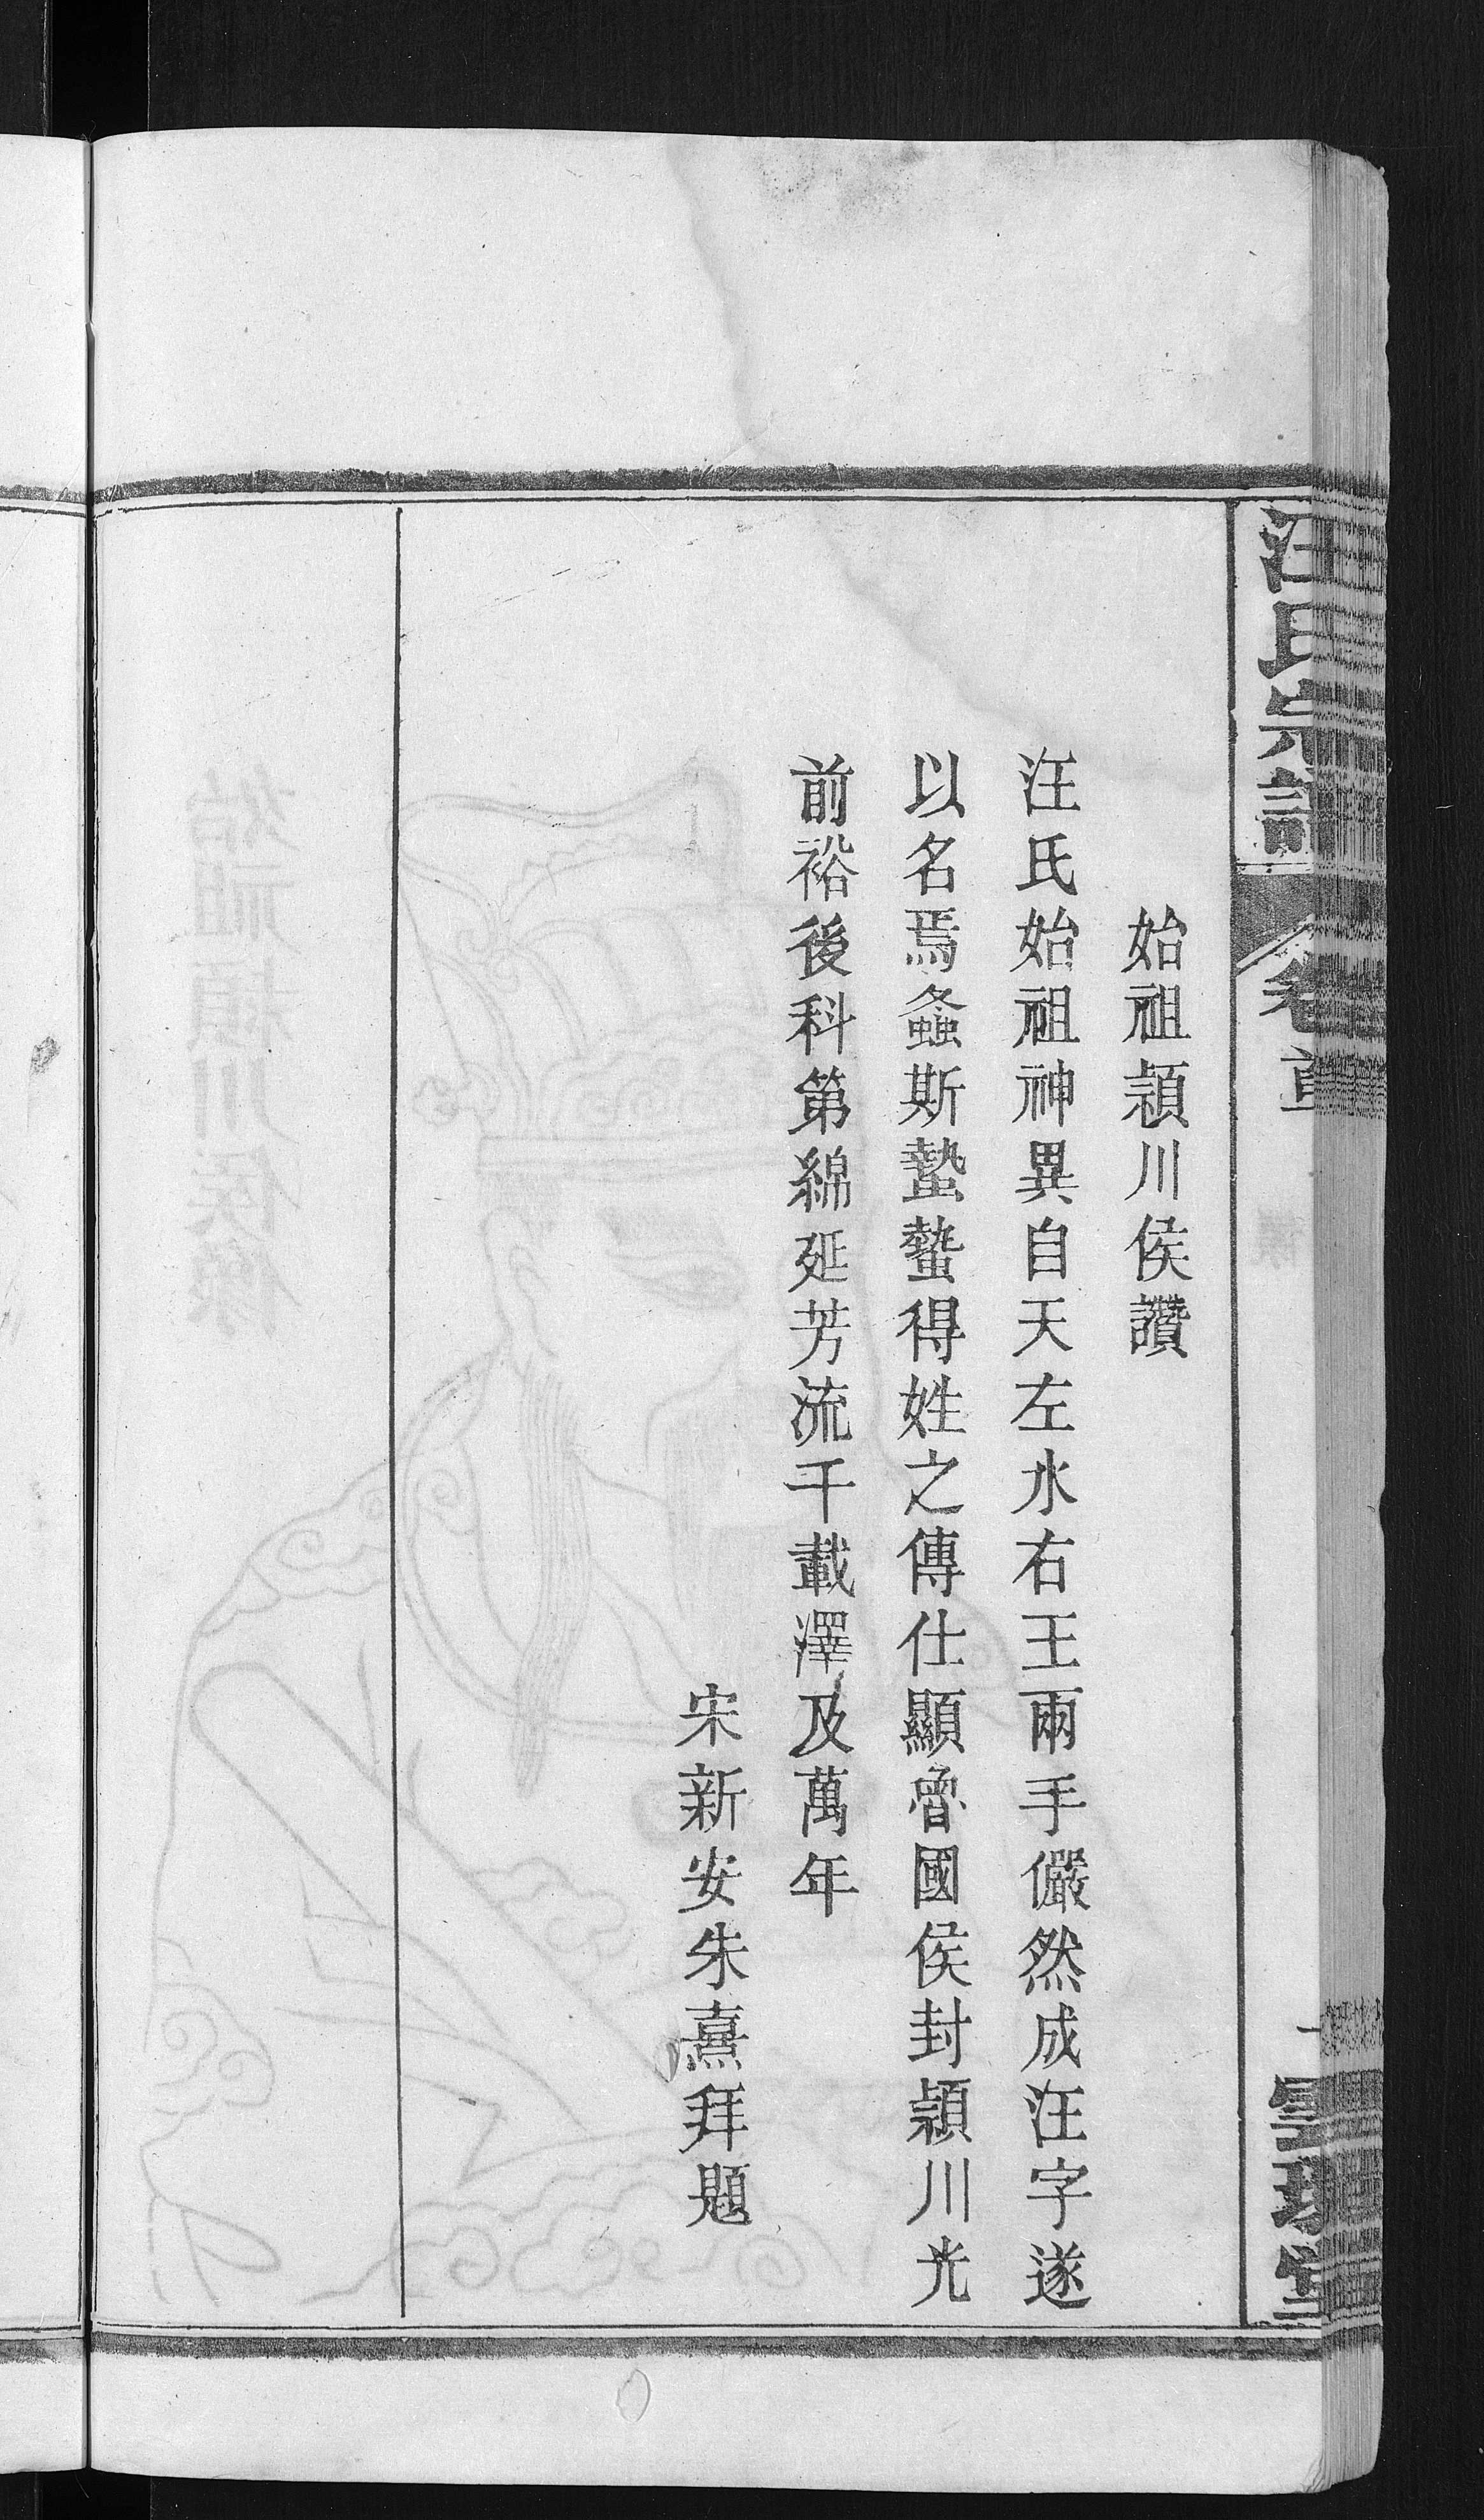 汪氏宗譜
卷首
始祖頴川侯讚
汪氏始祖神異自天左水右王兩手儼然成汪字遂
以名焉螽斯蟄蟄得姓之傳仕顯魯國侯封頴川光
前裕後科第綿延芳流千載澤及萬年
宋新安朱熹拜題